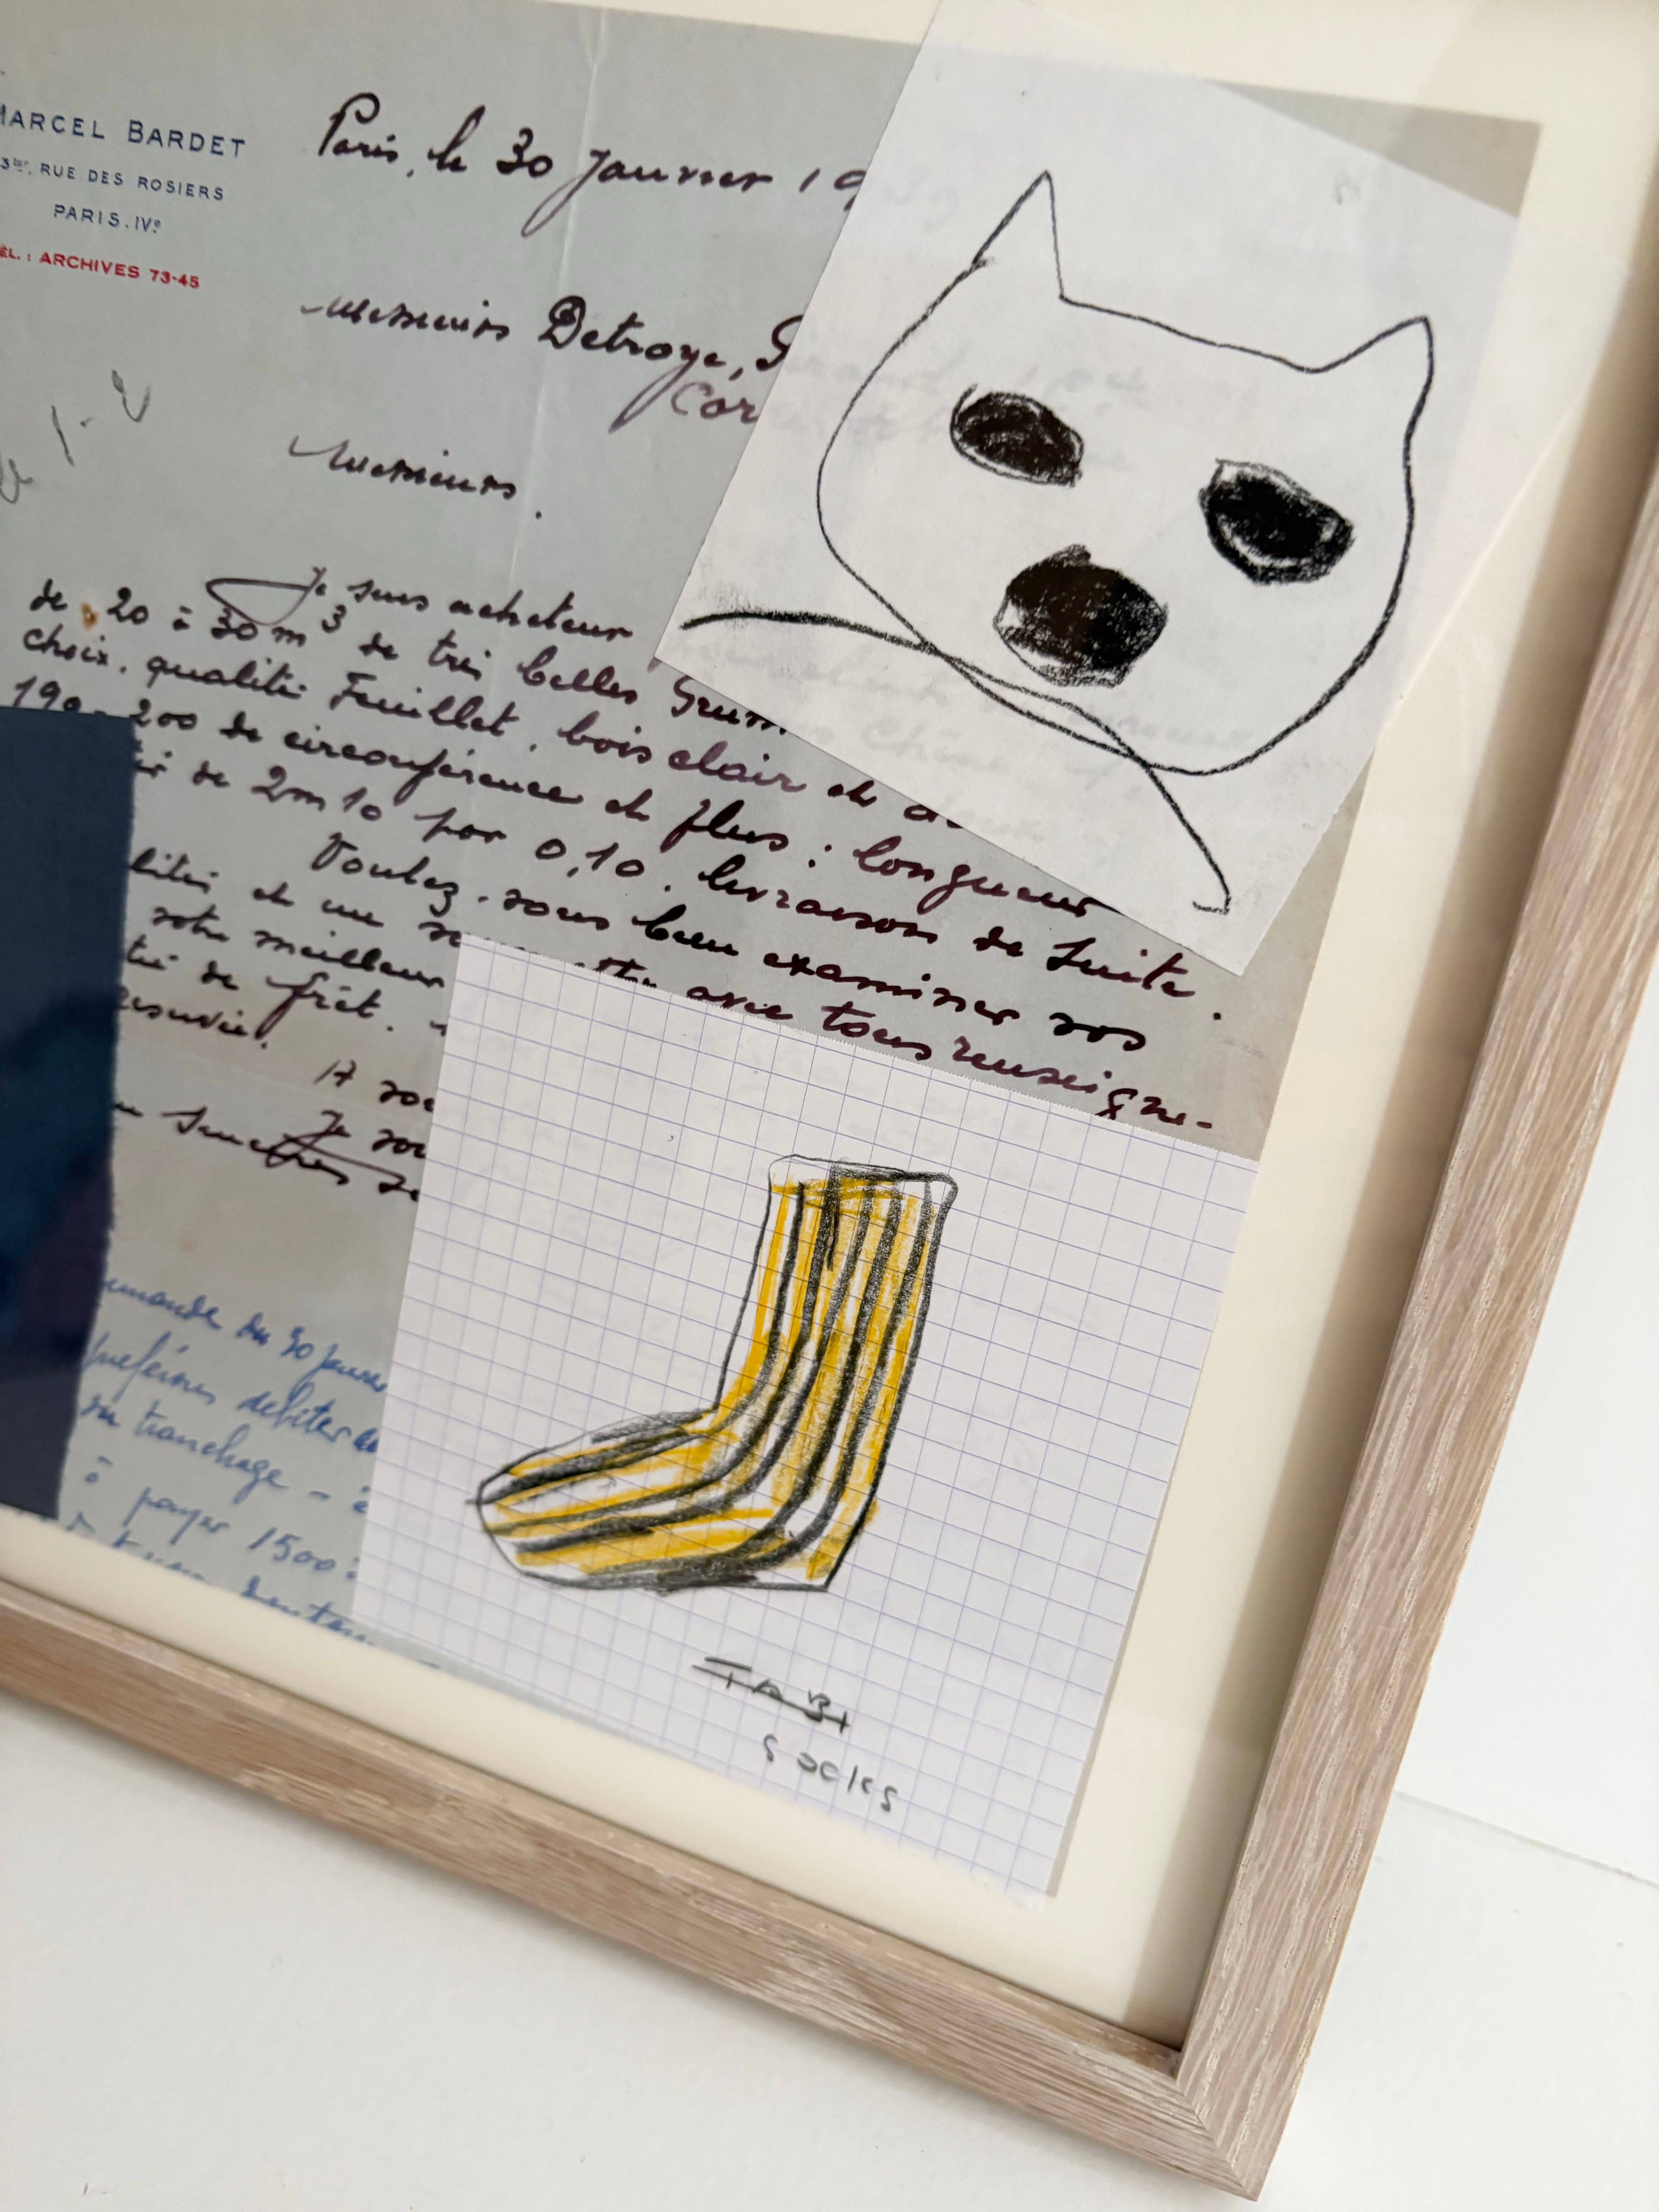 MARCEL BARDET
RUE DES ROSIERS
PARIS.IVᵉ
ARCHIVES 73-45
Paris, le 30 janvier 19
Messieurs Detroye, G
Cor
Messieurs.
Je suis acheteur
de 20 à 30 m³ de très belles Grum
choix, qualité Feuillet, bois clair et
190-200 de circonférence et plus : longueur
de 2m10 par 0,10. livraison de suite.
Voulez-vous bien examiner vos
et me avec tous renseigne-
votre meilleur
de frêt.
A vou
Je vou
mande du 30 janvier
préférer débiter
tranchage - à
à payer 1500
TABI
SOCKS